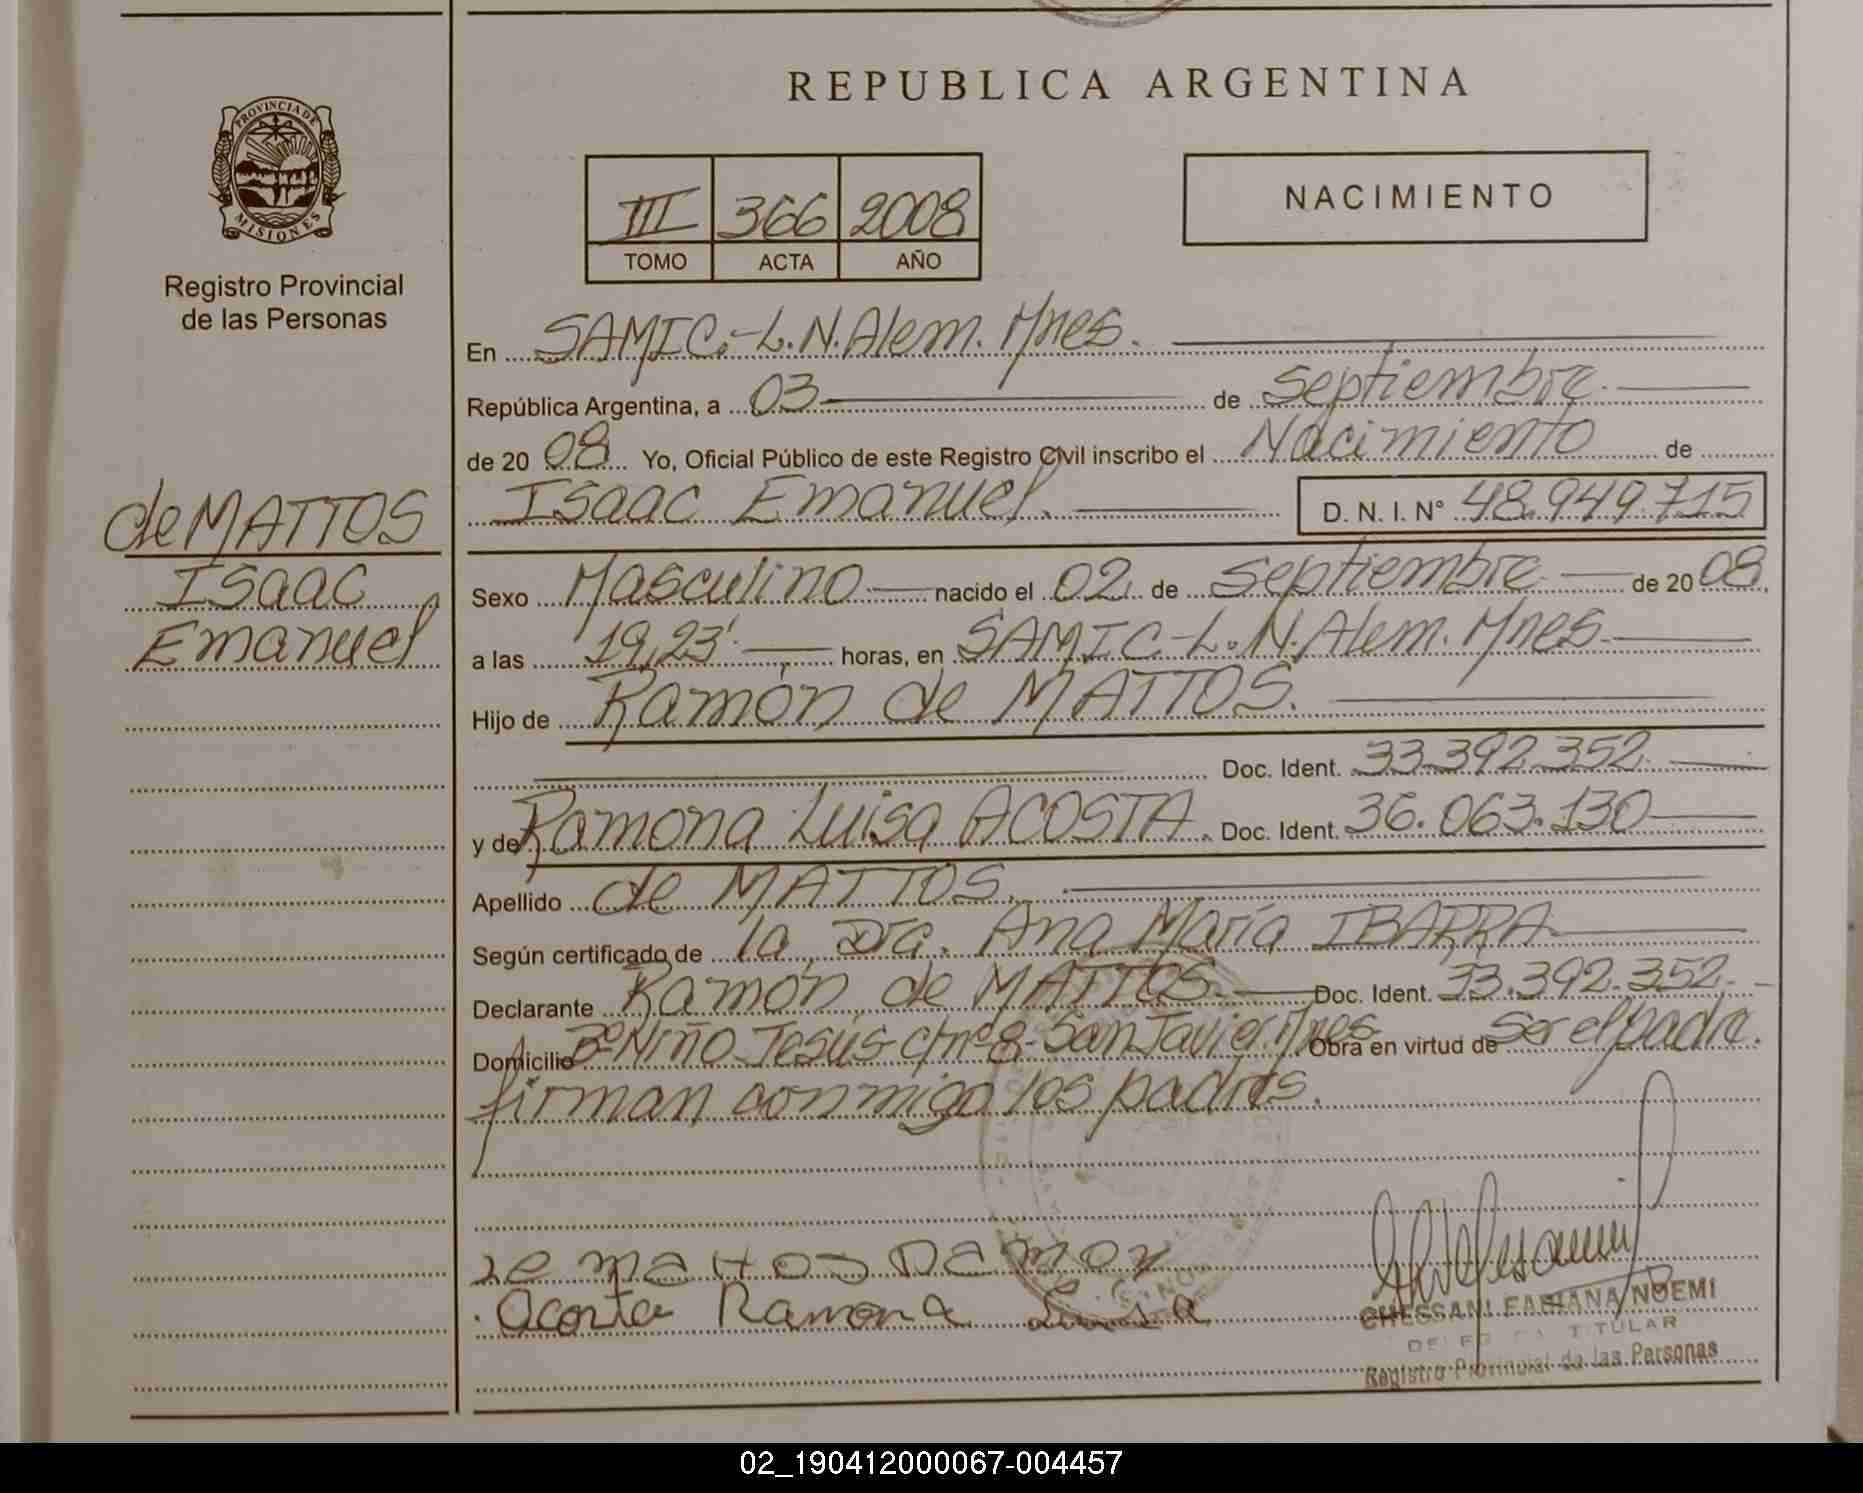 REPUBLICA ARGENTINA
PROVINCIA DE
MISIONES
Registro Provincial
de las Personas
III 366 2008
TOMO ACTA AÑO
NACIMIENTO
En SAMIC.-L.N.Alem. Mnes.
República Argentina, a 03 de Septiembre
de 2008 Yo, Oficial Público de este Registro Civil inscribo el Nacimiento de
Isaac Emanuel. D. N. I. N° 48.949.715
de MATTOS
Isaac
Emanuel
Sexo Masculino nacido el 02 de Septiembre de 2008
a las 19,23' horas, en SAMIC-L.N.Alem. Mnes
Hijo de Ramón de MATTOS.
Doc. Ident. 33.392.352
y de Ramona Luisa ACOSTA. Doc. Ident. 36.063.130
Apellido de MATTOS.
Según certificado de la Dra. Ana María IBARRA
Declarante Ramón de MATTOS. Doc. Ident. 33.392.352.
Domicilio B° Niño Jesús San Javier. Mnes Obra en virtud de Ser el padre.
firman conmigo los padres.
de mattos Ramon
Acosta Ramona Luisa
CHESSANI FABIANA NOEMI
TITULAR
Registro Provincial de las Personas
02_190412000067-004457